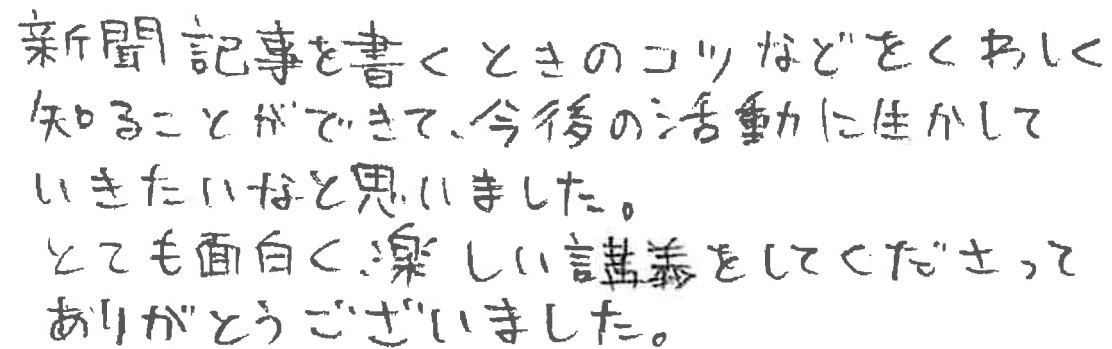 新聞記事を書くときのコツなどをくわしく
知ることができて、今後の活動に生かして
いきたいなと思いました。
とても面白く、楽しい講義をしてくださって
ありがとうございました。